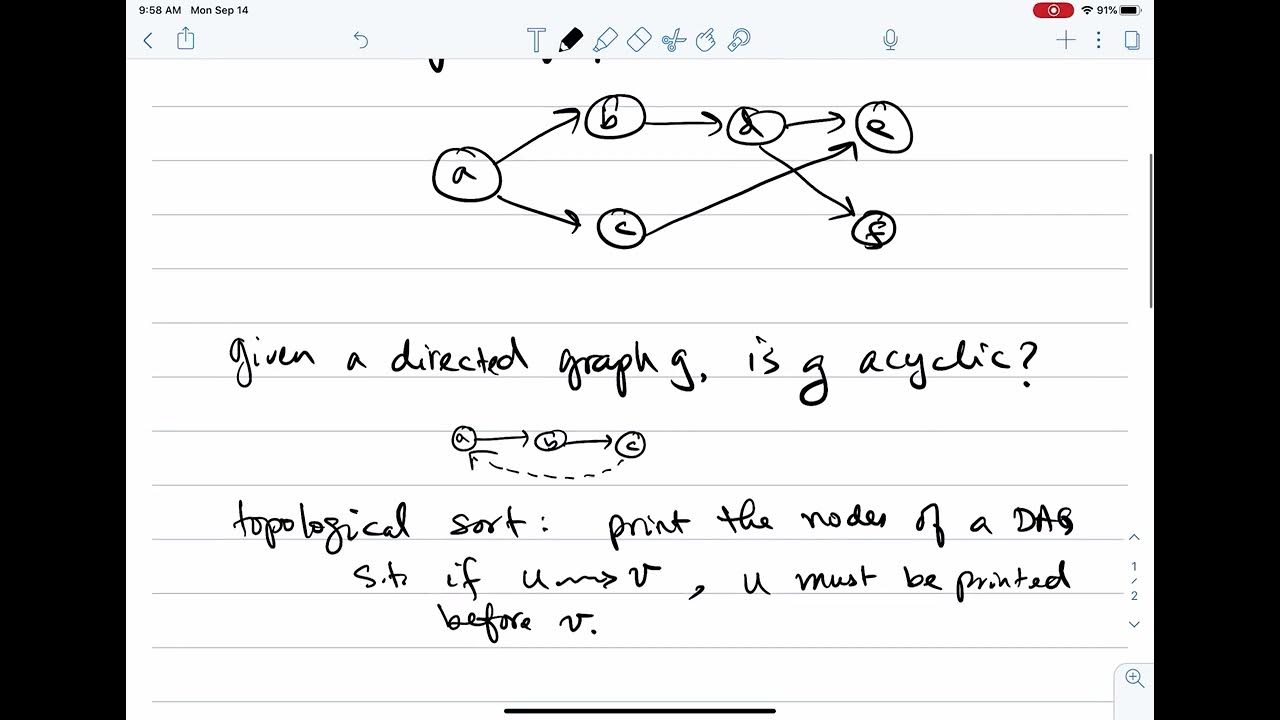 9:58 AM Mon Sep 14
91%
T
b
d
e
a
c
f
given a directed graph g, is g acyclic?
a
b
c
topological sort: print the nodes of a DAG
s.t. if u ⇝ v, u must be printed
before v.
1
/
2